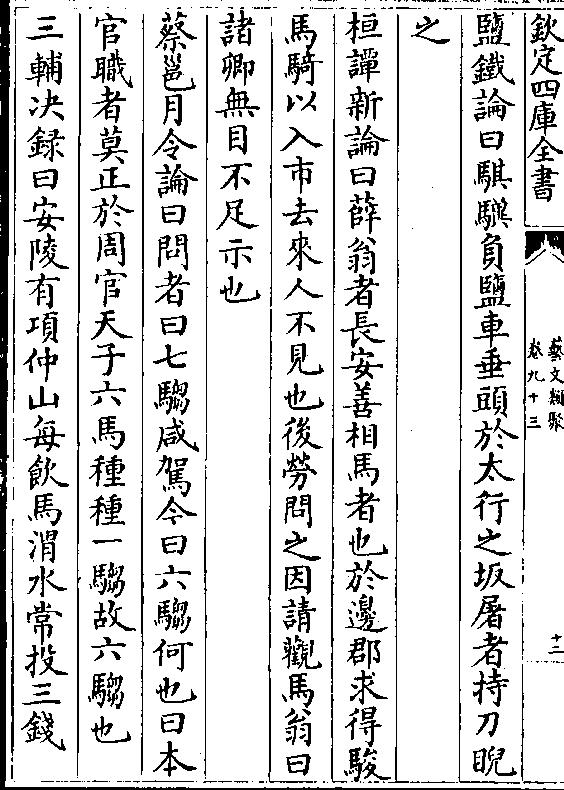 欽定四庫全書
藝文類聚
卷九十三
十二
鹽鐵論曰騏驥負鹽車垂頭於太行之坂屠者持刀睨
之
桓譚新論曰薛翁者長安善相馬者也於邊郡求得駿
馬騎以入市去來人不見也後勞問之因請觀馬翁曰
諸卿無目不足示也
蔡邕月令論曰問者曰七騶咸駕今曰六騶何也曰本
官職者莫正於周官天子六馬種種一騶故六騶也
三輔决録曰安陵有項仲山每飲馬渭水常投三錢